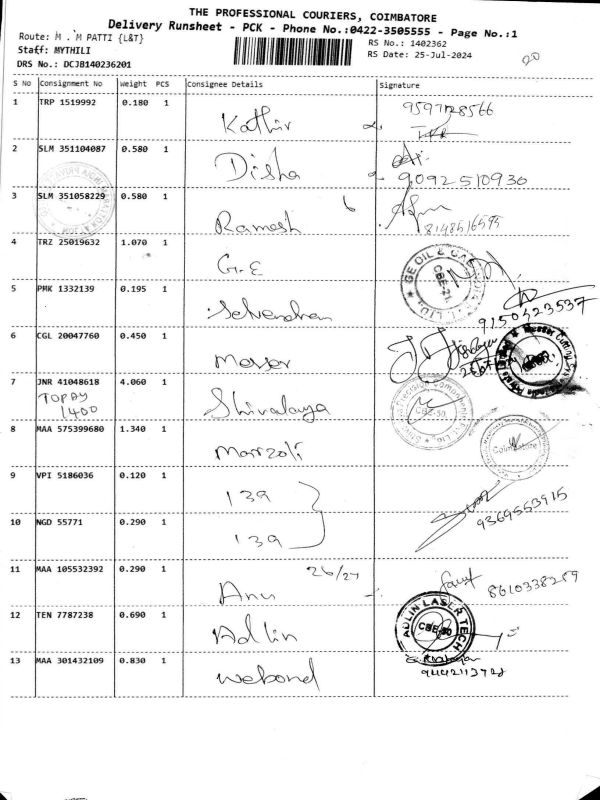 THE PROFESSIONAL COURIERS, COIMBATORE
Delivery Runsheet - PCK - Phone No.:0422-3505555 - Page No.:1
Route: M . M PATTI {L&T}
RS No.: 1402362
Staff: MYTHILI
RS Date: 25-Jul-2024
20
DRS No.: DCJB140236201
S No Consignment No Weight PCS Consignee Details Signature
1 TRP 1519992 0.180 1 Kathir
2 SLM 351104087 0.580 1 Disha 9092510930
3 SLM 351058229 0.580 1 Ramesh 8148516595
4 TRZ 25019632 1.070 1 G.E GE OIL & GAS CBE-21
5 PMK 1332139 0.195 1 Selvendran 9150423537
6 CGL 20047760 0.450 1 Messer
7 JNR 41048618 4.060 1 Shivalaya CBE-50
TOPAY
1400
8 MAA 575399680 1.340 1 Marzoli Coimbatore
9 VPI 5186036 0.120 1 139 9369553915
10 NGD 55771 0.290 1 139
11 MAA 105532392 0.290 1 Anu 26/27 8610338259
12 TEN 7787238 0.690 1 Adlin ADLIN LASER TECH CBE-50
13 MAA 301432109 0.830 1 Webond 9442113728